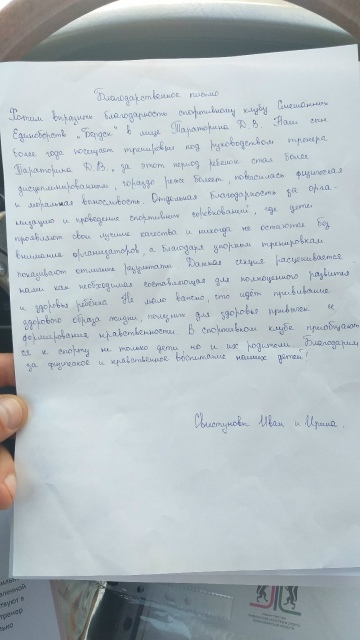 Благодарственное письмо
Хотим выразить благодарность спортивному клубу Смешанных
Единоборств „Бердск" в лице Тараторина Д.В. Наш сын
более года посещает тренировки под руководством тренера
Тараторина Д.В., за этот период ребенок стал более
дисциплинированным, гораздо реже болеет, повысилась физическая
и моральная выносливость. Отдельная благодарность за орга-
низацию и проведение спортивных соревнований, где дети
проявляют свои лучшие качества и никогда не остаются без
внимания организаторов, а благодаря упорным тренировкам
показывают отличные результаты. Данная секция расценивается
нами как необходимая составляющая для полноценного развития
и здоровья ребёнка. Не мало важно, что идёт прививание
здорового образа жизни, полезных для здоровья привычек и
формирования нравственности. В спортивном клубе приобщают
ся к спорту не только дети но и их родители. Благодарим
за физическое и нравственное воспитание наших детей!
Свистуновы Иван и Ирина.
тренер